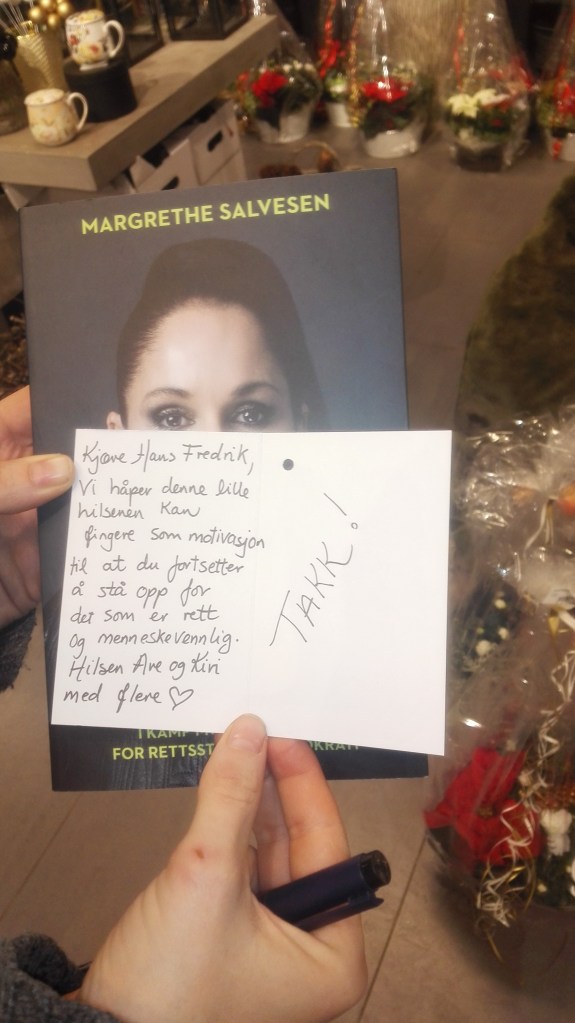 MARGRETHE SALVESEN
Kjære Hans Fredrik,
Vi håper denne lille
hilsenen kan
fingere som motivasjon
til at du fortsetter
å stå opp for
det som er rett
og menneskevennlig.
Hilsen Are og Kiri
med flere ♡
TAKK!
I KAMP
FOR RETTSST